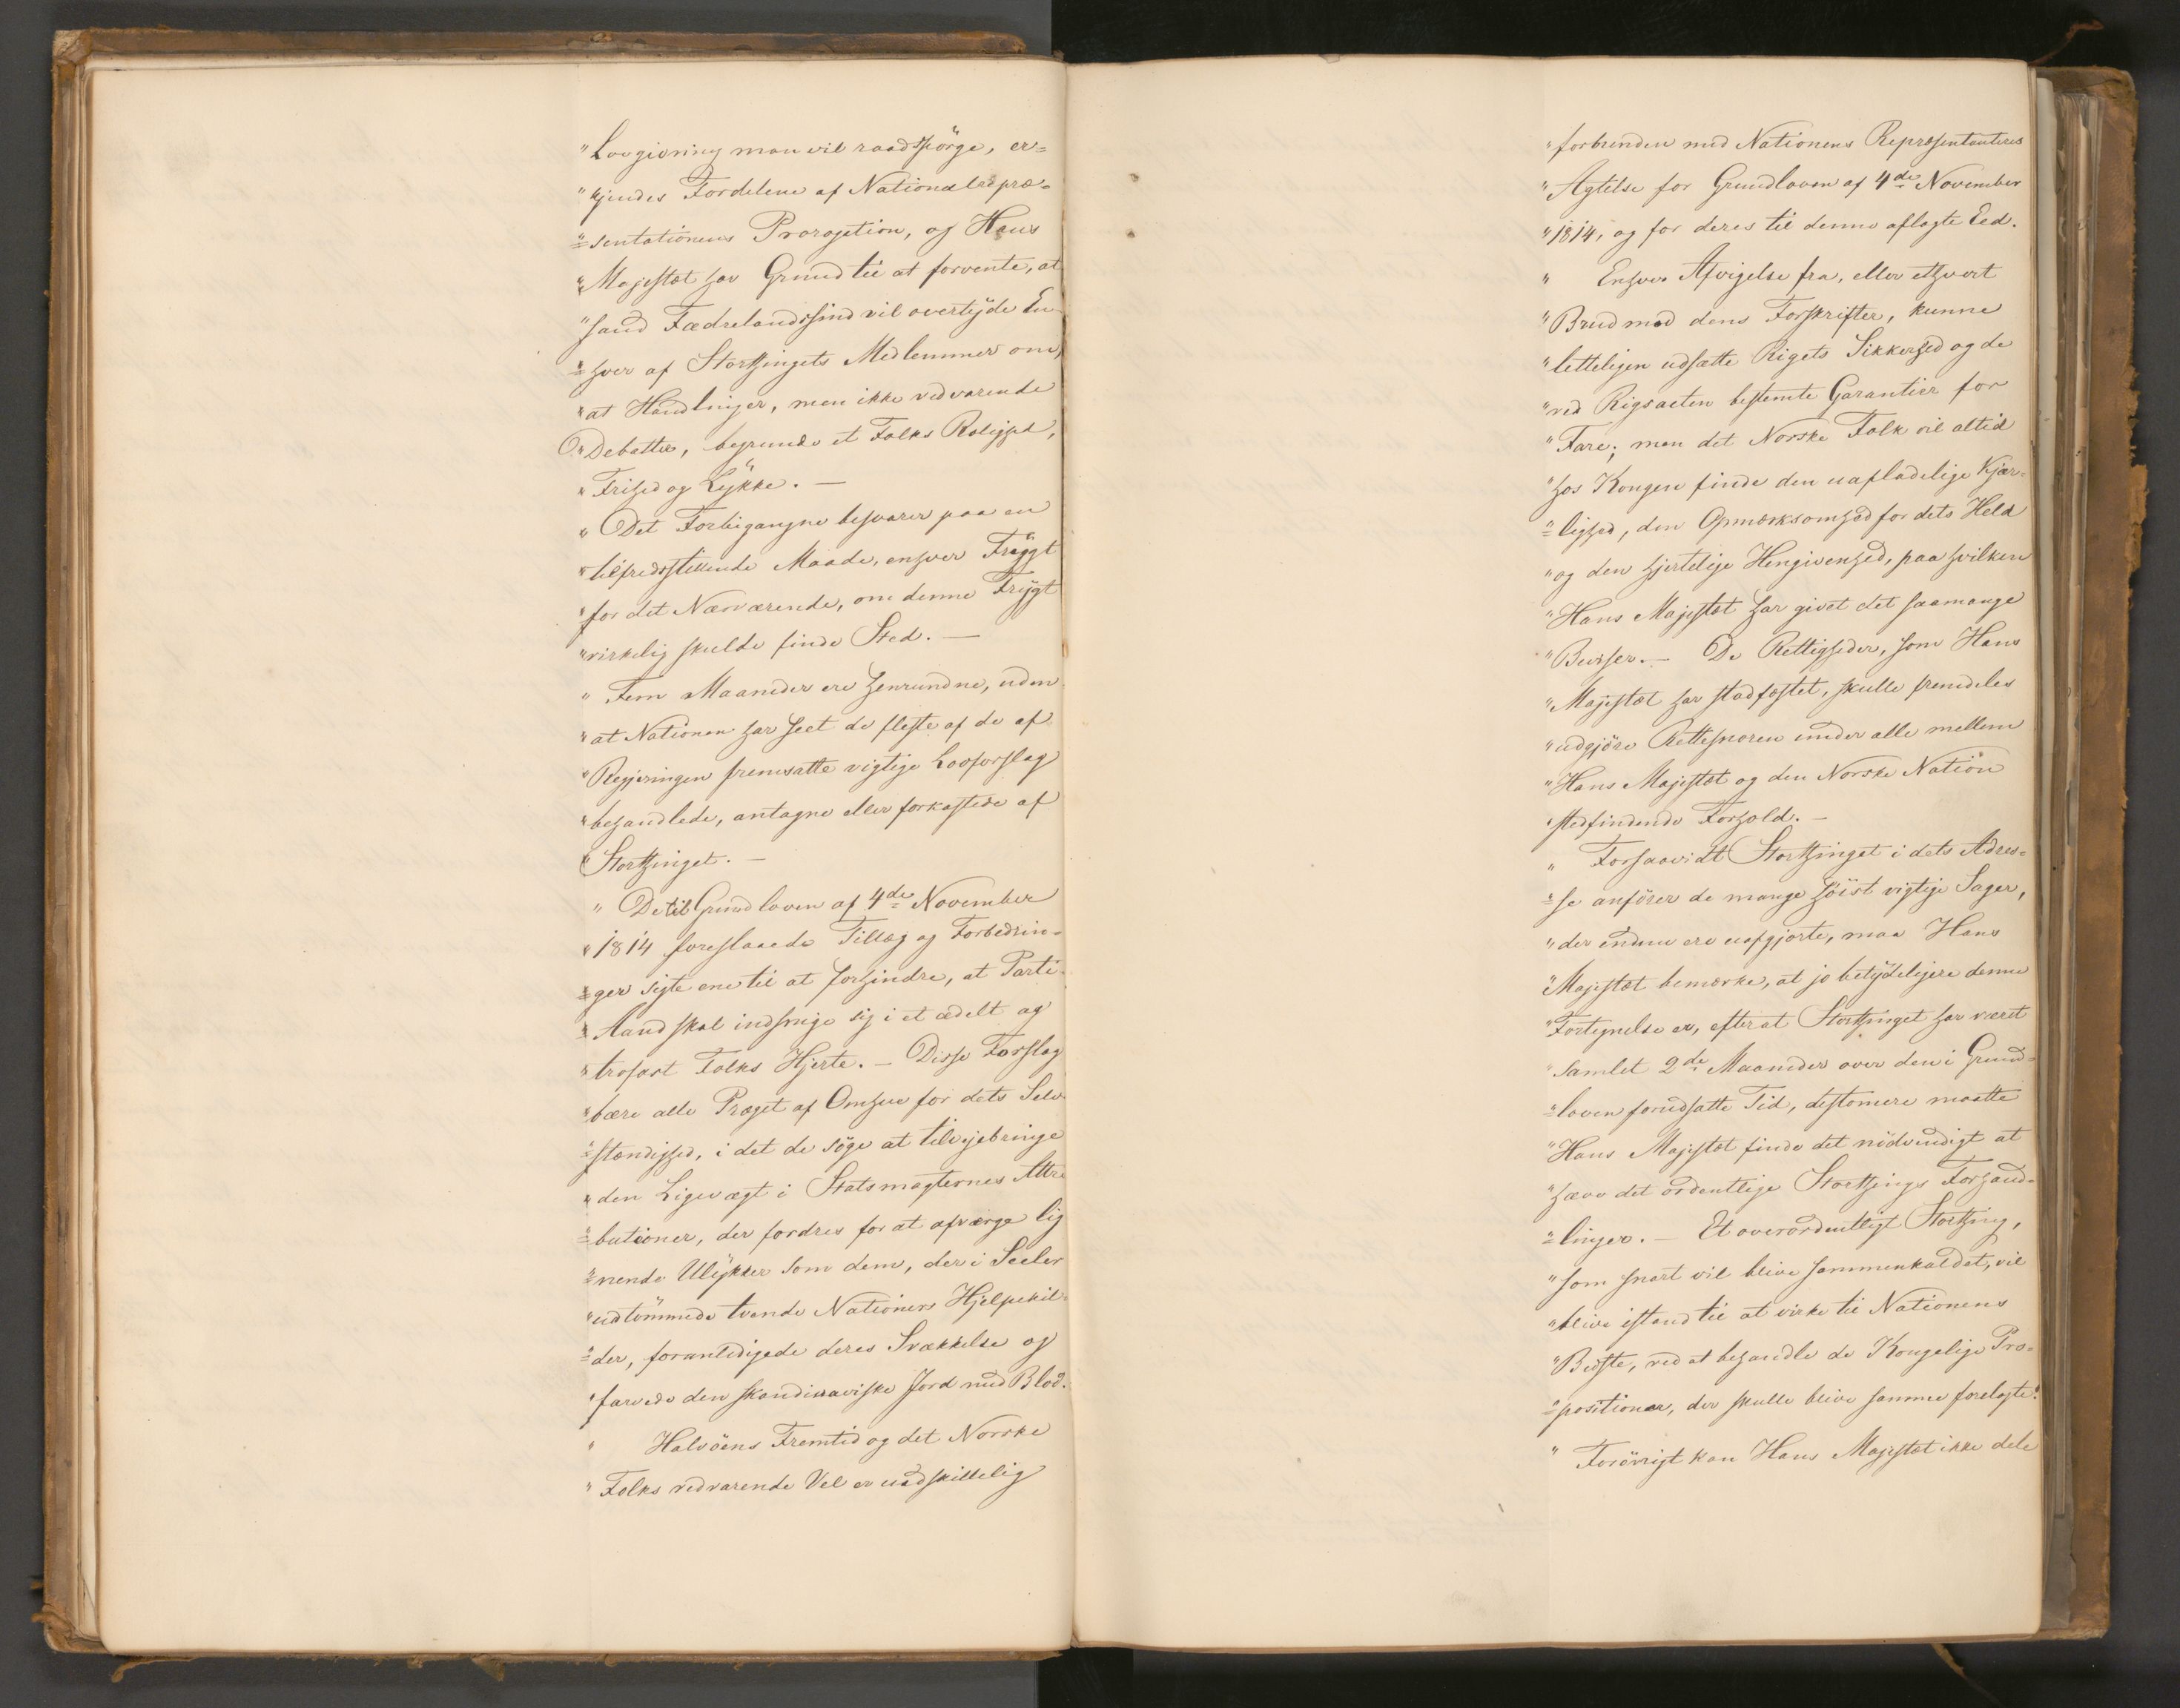 "Lovgivning man vil raadspörge, er=
"kjendes Fordelene af Nationalrepræ=
"=sentationens Prorogation, og Hans
"Majestæt har Grund til at forvente, at
"sand Fædrelandssind vil overtyde En=
"=hver af Storthingets Medlemmer om,
"at Handlinger, men ikke vedvarende
"Debatter, begrunde et Folks Rolighed,
"Frihed og Lykke. —
"Det Forbigangne besvarer paa en
"tilfredsstillende Maade, enhver Frygt
"for det Nærværende, om denne Frygt
"virkelig skulde finde Sted. —
"Fem Maaneder ere henrundne, uden
"at Nationen har seet de fleste af de af
"Regjeringen fremsatte vigtige Lovforslag
"behandlede, antagne eller forkastede af
"Storthinget. —
"De til Grundloven af 4de November
"1814 foreslaaede Tillæg og Forbedrin=
"=ger sigte ene til at forhindre, at Parti=
"=Aand skal indsnige sig i et ædelt og
"trofast Folks Hjerte. — Disse Forslag
"bære alle Præget af Omhue for dets Selv=
"=stændighed, i det de söge at tilvejebringe
"den Ligevægt i Statsmagternes Attri
"=butioner, der fordres for at afværge lig
"=nende Ulykker som dem, der i Secler
"udtömmede tvende Nationers Hjelpekil=
"=der, foranledigede deres Svækkelse og
"farvede den skandinaviske Jord med Blod.
" Halvöens Fremtid og det Norske
"Folks vedvarende Vel er uadskillelig
"forbunden med Nationens Repræsentanters
"Agtelse for Grundloven af 4de November
"1814, og for deres til denne aflagte Eed.
" Enhver Afvigelse fra, eller ethvert
"Brud mod dens Forskrifter, kunne
"letteligen udsætte Rigets Sikkerhed og de
"ved Rigsacten bestemte Garantier for
"Fare; men det Norske Folk vil altid
"hos Kongen finde den uafladelige Kjær=
"=lighed, den Opmærksomhed for dets Held
"og den hjertelige Hengivenhed, paa hvilken
"Hans Majestæt har givet det saamange
"Beviser. — De Rettigheder, som Hans
"Majestæt har stadfæstet, skulle fremdeles
"udgjöre Rettesnoren under alle mellem
"Hans Majestæt og den Norske Nation
"stedfindende Forhold. —
" Forsaavidt Storthinget i dets Adres=
"=se anförer de mange höist vigtige Sager,
"der endnu ere uafgjorte, maa Hans
"Majestæt bemærke, at jo betydeligere denne
"Fortegnelse er, efterat Storthinget har været
"samlet 2de Maaneder over den i Grund=
"=loven forudsatte Tid, destomere maatte
"Hans Majestæt finde det nödvendigt at
"hæve det ordentlige Storthings Forhand=
"=linger. — Et overordentligt Storthing,
"som snart vil blive sammenkaldet, vil
"blive istand til at virke til Nationens
"Bedste, ved at behandle de Kongelige Pro=
"=positioner, der skulle blive samme forelagte.
" Forövrigt kan Hans Majestæt ikke dele